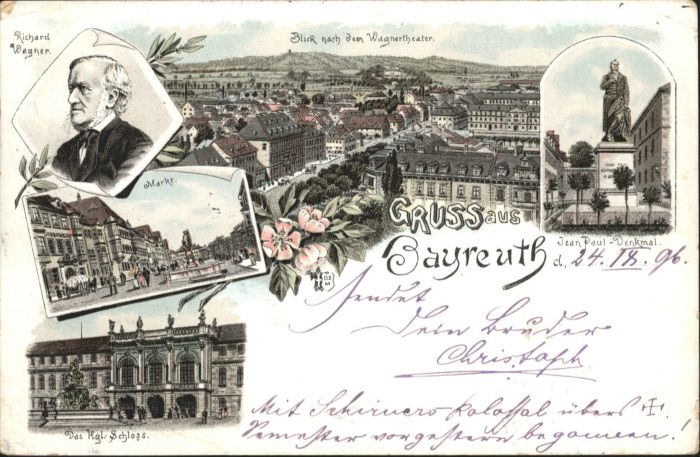 Richard
Wagner.
Blick nach dem Wagnertheater.
Markt.
GRUSS aus
Bayreuth
Jean Paul-Denkmal.
d. 24. IX. 96.
Sendet
Dein Bruder
Christoph
Mit Schirners Kolossal übers
Semester vorgestern begonnen!
Das Kgl. Schloss.